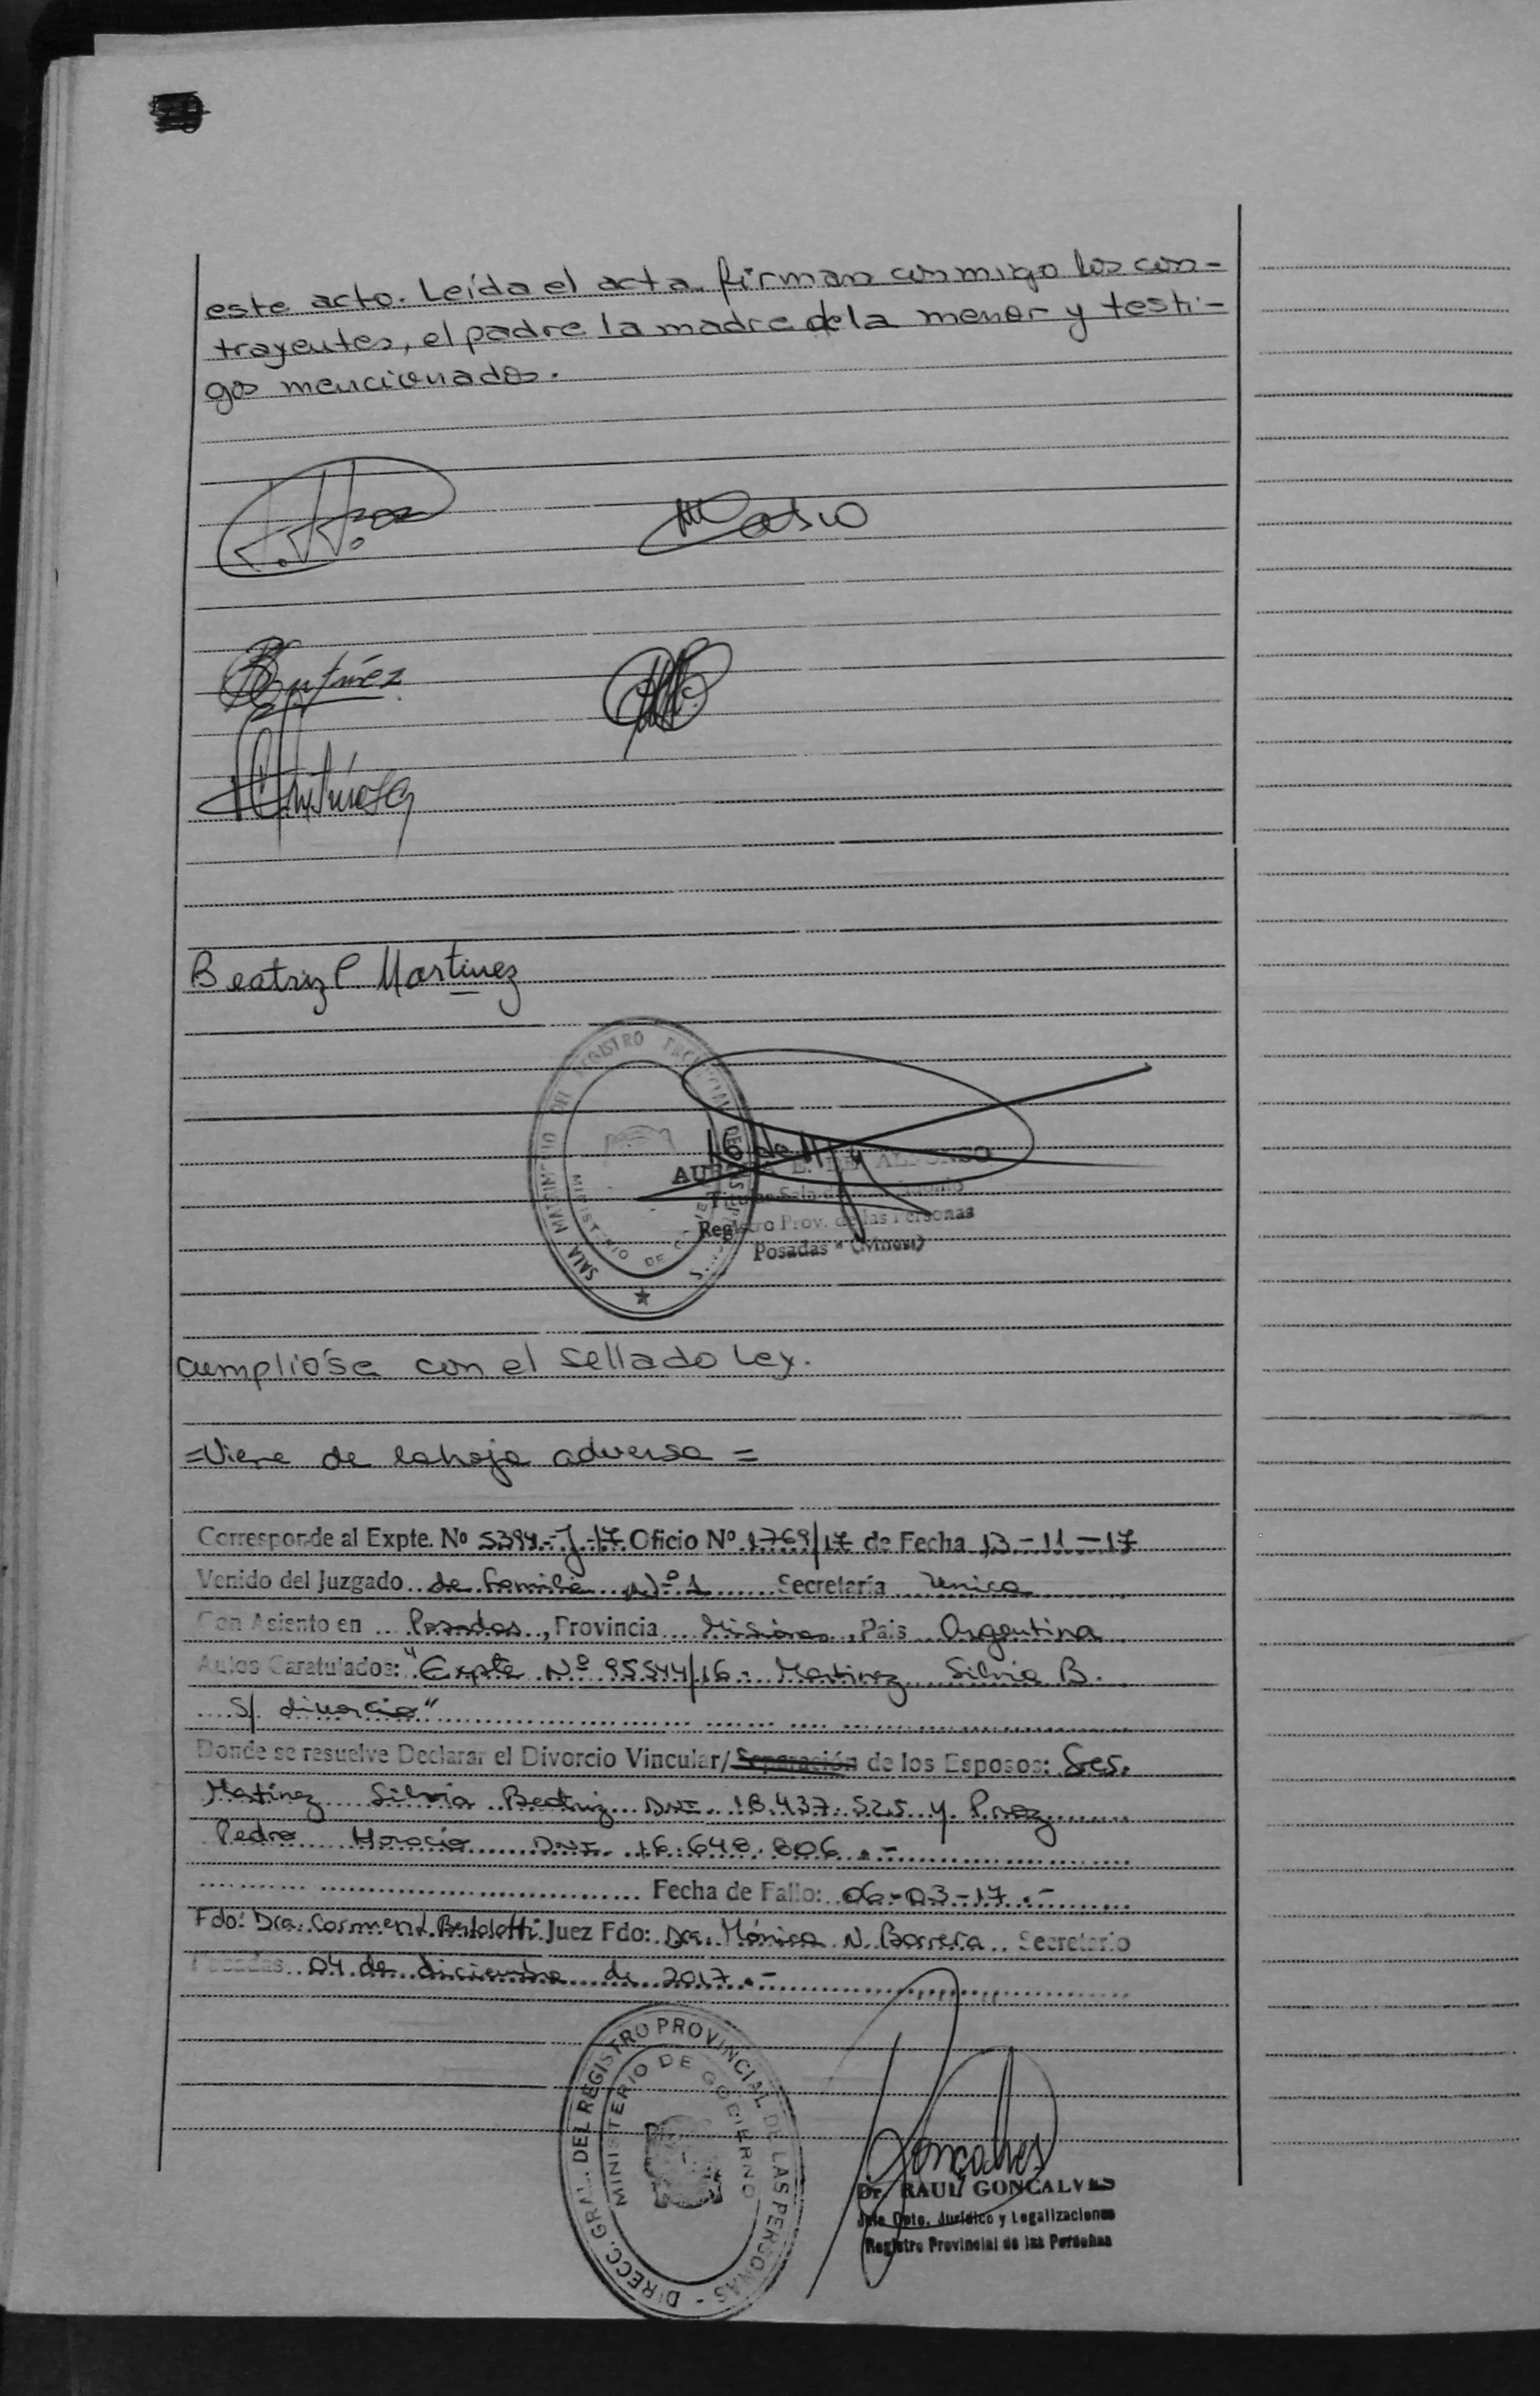 este acto. Leída el acta. firman conmigo los con-
trayentes, el padre la madre de la menor y testi-
gos mencionados.
Beatriz C. Martinez
SALA MATRIMONIO DEL REGISTRO PROVINCIAL DE LAS PERSONAS
MINISTERIO DE
16 de
E. DE ALFONSO
Titular Sala de
Registro Prov. de las Personas
Posadas - (Mnes)
Cumplióse con el sellado Ley.
=Viene de la hoja adversa=
Corresponde al Expte. Nº 5394-J-17 Oficio Nº 1769/17 de Fecha 13-11-17
Venido del Juzgado de Familia Nº 1 Secretaría Unica
Con Asiento en Posadas, Provincia Misiones, Pais Argentina
Autos Caratulados: "Expte Nº 95544/16 - Martinez Silvia B.
S/ divorcio"
Donde se resuelve Declarar el Divorcio Vincular/Separación de los Esposos: Sres.
Martinez Silvia Beatriz DNI. 18.437.525 y
Pedro Horacio DNI. 16.648.806.-
Fecha de Fallo: 06-03-17.-
Fdo: Dra. Carmen L. Bertolotti Juez Fdo: Dra. Mónica N. Barrera Secretario
Posadas 04 de diciembre de 2017.-
DIRECC. GRAL. DEL REGISTRO PROVINCIAL DE LAS PERSONAS -
MINISTERIO DE GOBIERNO
Dr. RAUL GONCALVES
Jefe Dpto. Jurídico y Legalizaciones
Registro Provincial de las Personas